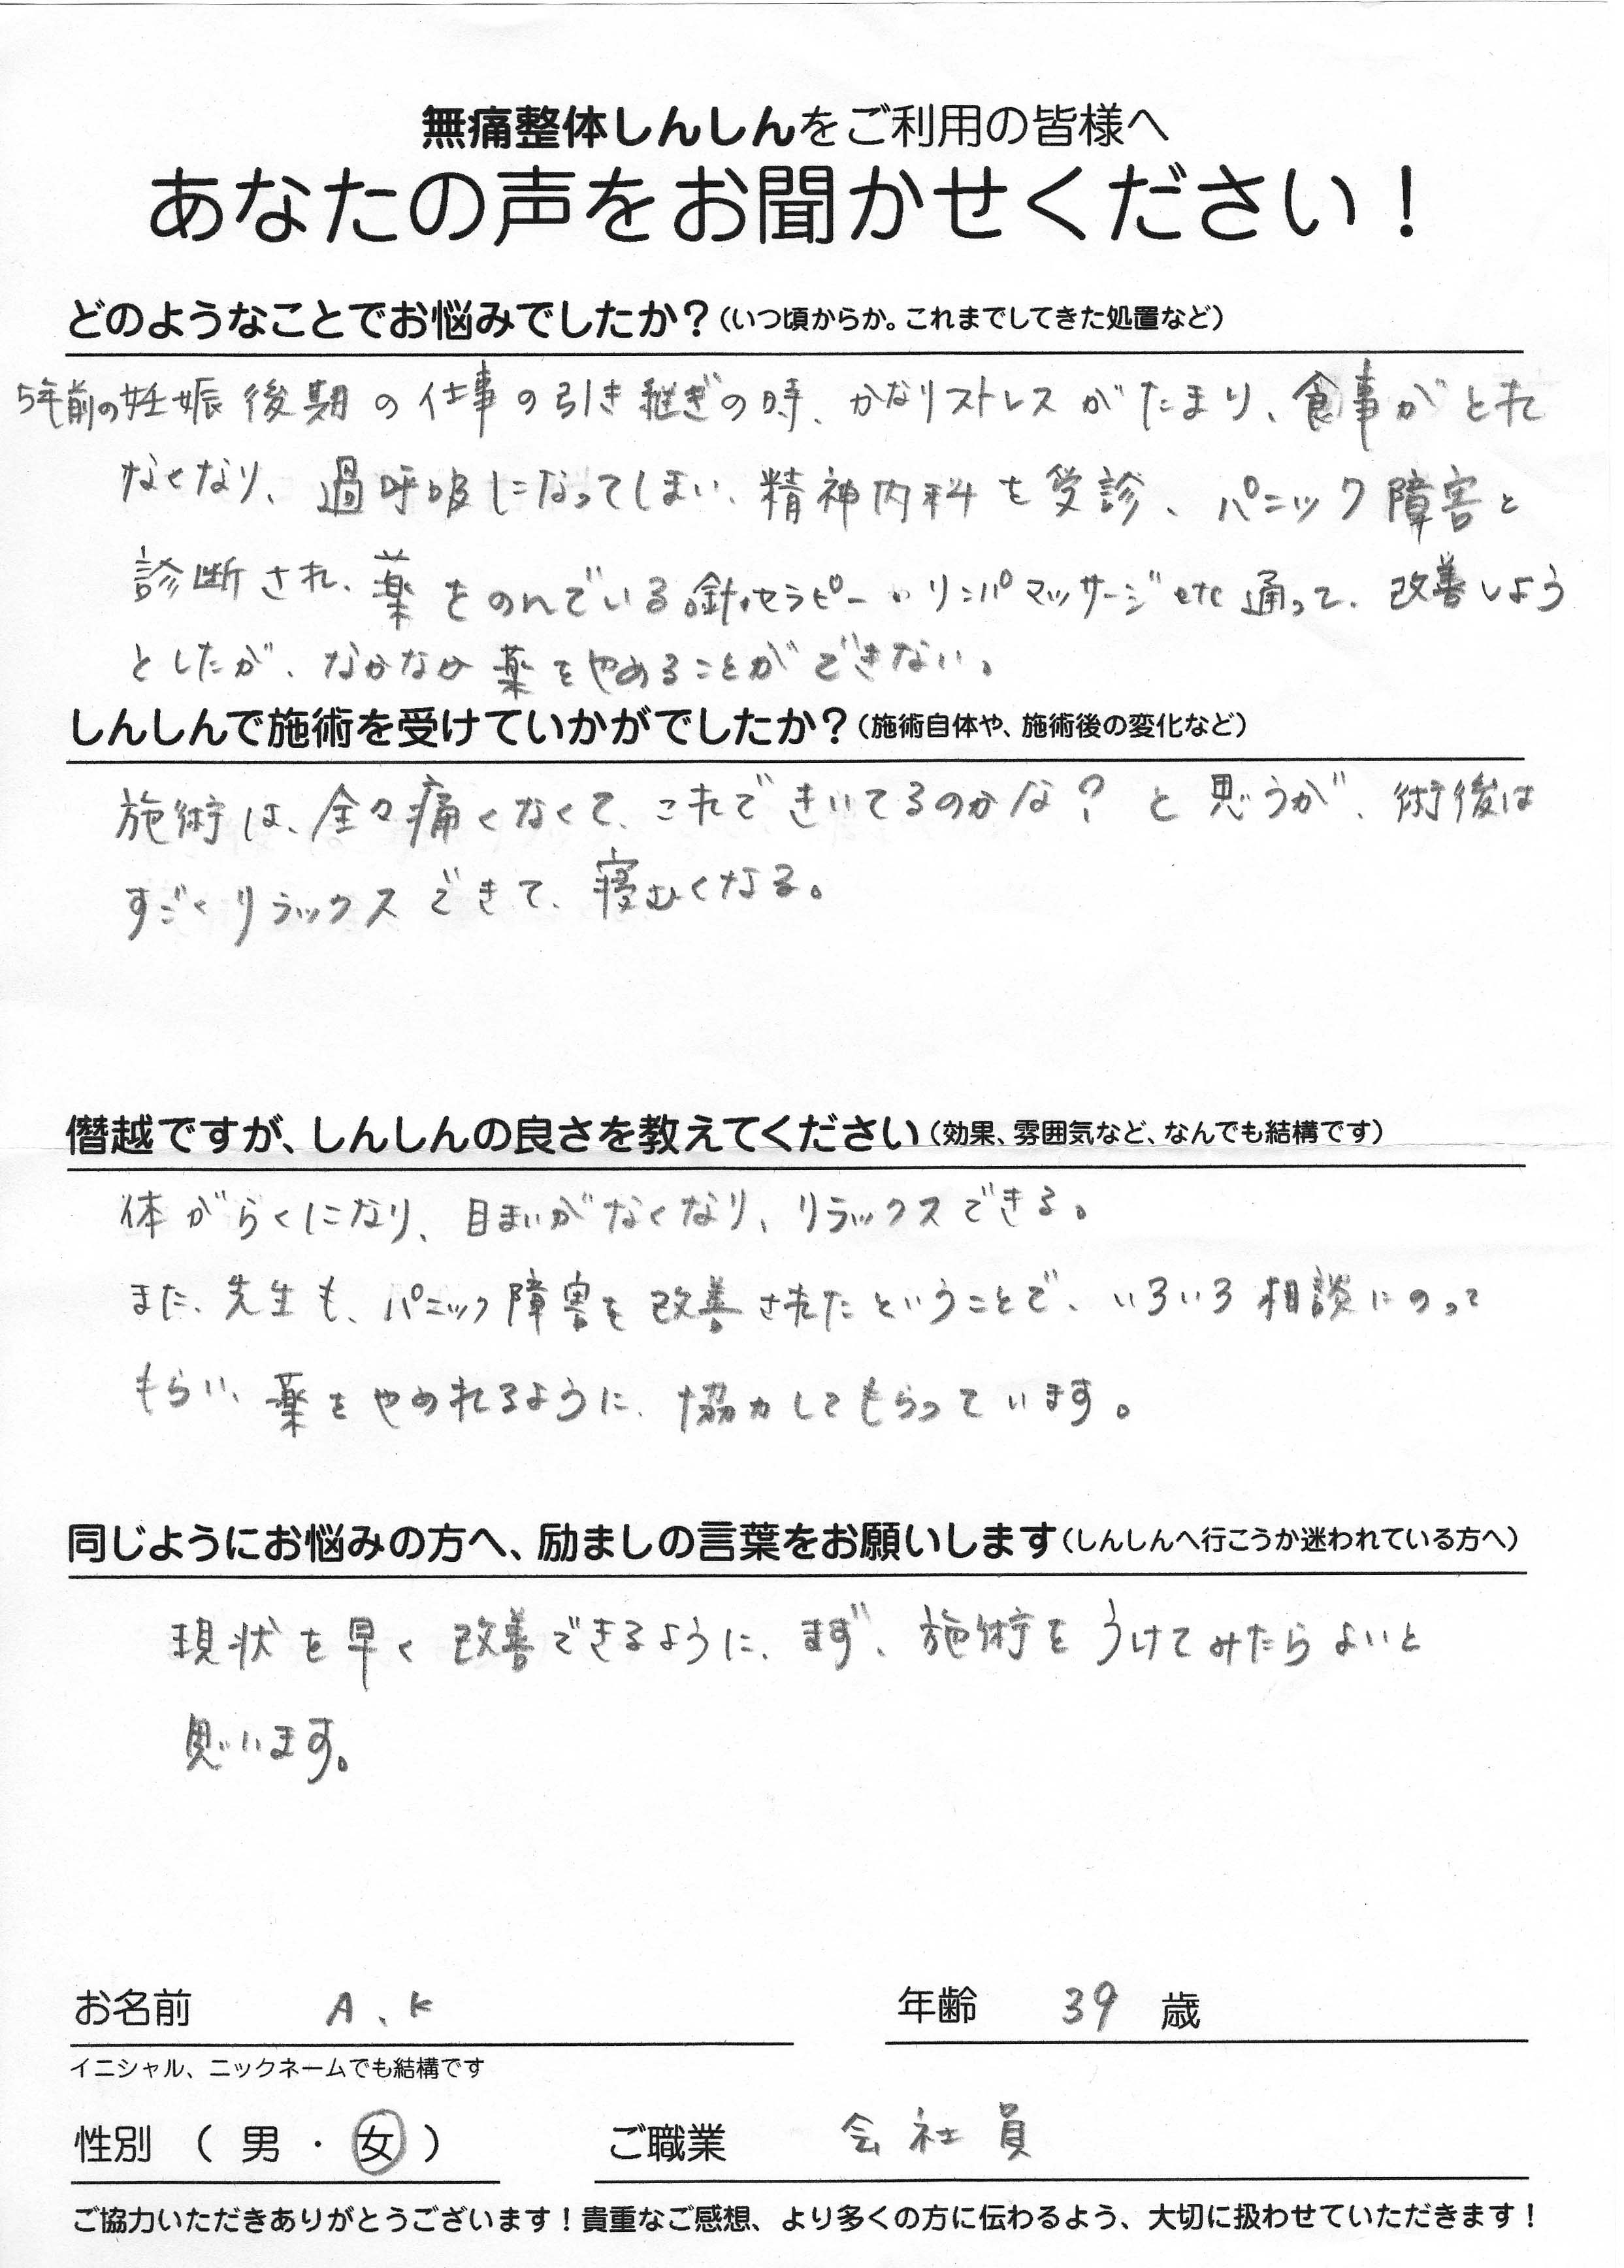 無痛整体しんしんをご利用の皆様へ
あなたの声をお聞かせください！
どのようなことでお悩みでしたか？（いつ頃からか。これまでしてきた処置など）
5年前の妊娠後期の仕事の引き継ぎの時、かなりストレスがたまり、食事がとれ
なくなり、過呼吸になってしまい、精神内科を受診、パニック障害と
診断され、薬をのんでいる。針やセラピー、リンパマッサージetc通って、改善しよう
としたが、なかなか薬をやめることができない。
しんしんで施術を受けていかがでしたか？（施術自体や、施術後の変化など）
施術は、全々痛くなくて、これできいてるのかな？と思うが、術後は
すごくリラックスできて、寝むくなる。
僭越ですが、しんしんの良さを教えてください（効果、雰囲気など、なんでも結構です）
体がらくになり、目まいがなくなり、リラックスできる。
また、先生も、パニック障害を改善されたということで、いろいろ相談にのって
もらい、薬をやめれるように、協力してもらっています。
同じようにお悩みの方へ、励ましの言葉をお願いします（しんしんへ行こうか迷われている方へ）
現状を早く改善できるように、まず、施術をうけてみたらよいと
思います。
お名前 A、K 年齢 39 歳
イニシャル、ニックネームでも結構です
性別（男・女） ご職業 会社員
ご協力いただきありがとうございます！貴重なご感想、より多くの方に伝わるよう、大切に扱わせていただきます！